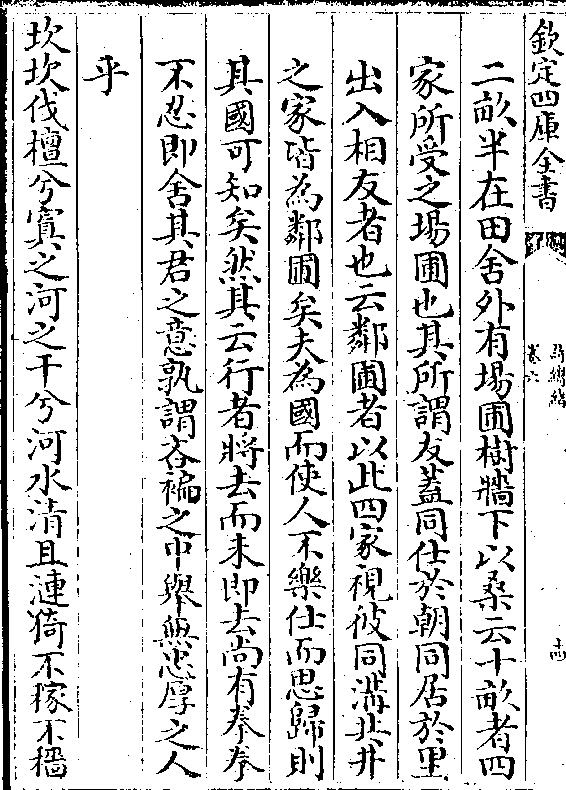 欽定四庫全書
詩纘緒
卷六
十四
二畝半在田舍外有場圃樹牆下以桑云十畝者四
家所受之場圃也其所謂友蓋同仕於朝同居於里
出入相友者也云鄰圃者以此四家視彼同溝共井
之家皆為鄰圃矣夫為國而使人不樂仕而思歸則
其國可知矣然其云行者將去而未即去尚有拳拳
不忍即舍其君之意孰謂吝褊之中舉無忠厚之人
乎
坎坎伐檀兮寘之河之干兮河水清且漣猗不稼不穡